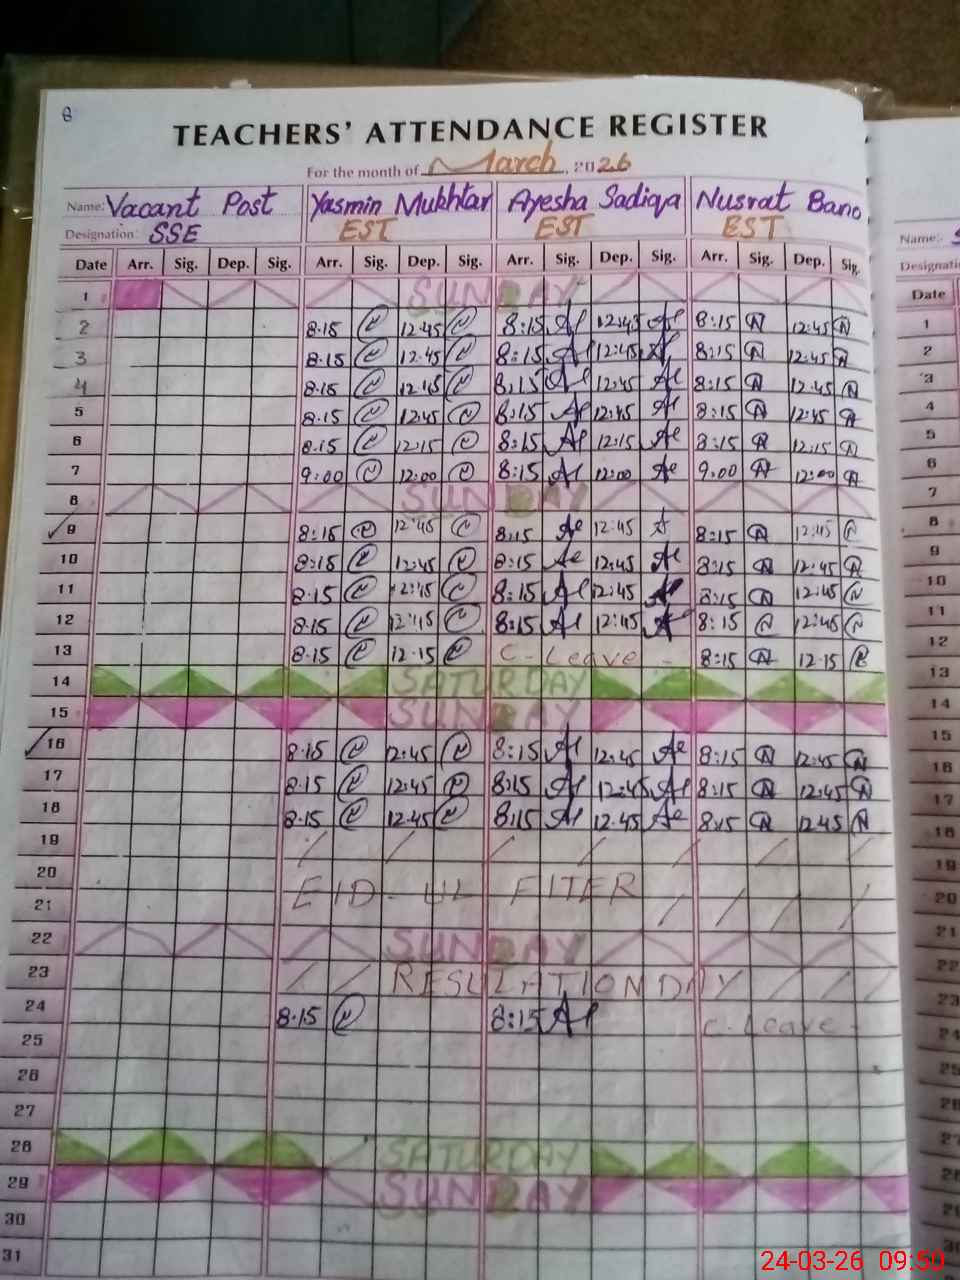 8
TEACHERS' ATTENDANCE REGISTER
For the month of March, 2026
Name: Vacant Post Yasmin Mukhtar Ayesha Sadiqa Nusrat Bano
Designation: SSE EST EST EST
Date Arr. Sig. Dep. Sig. Arr. Sig. Dep. Sig. Arr. Sig. Dep. Sig. Arr. Sig. Dep. Sig.
1 SUNDAY
2 8.15 12.45 8:15 12:45 8:15 12:45
3 8.15 12.45 8:15 12:45 8:15 12:45
4 8.15 12.45 8:15 12:45 8:15 12:45
5 8.15 12.45 8:15 12:45 8:15 12:45
6 8.15 12.15 8:15 12:15 8:15 12:15
7 9.00 12.00 8:15 12:00 9.00 12:00
8 SUNDAY
9 8:15 12:45 8:15 12:45 8:15 12:45
10 8:15 12:45 8:15 12:45 8:15 12:45
11 8.15 12:45 8:15 12:45 8:15 12:45
12 8.15 12:45 8:15 12:45 8:15 12:45
13 8.15 12.15 C-Leave 8:15 12.15
14 SATURDAY
15 SUNDAY
16 8.15 12.45 8:15 12:45 8:15 12:45
17 8.15 12.45 8:15 12:45 8:15 12:45
18 8.15 12.45 8:15 12.45 8:15 12:45
19
20 EID-UL FITER
21
22 SUNDAY
23 RESULATION DAY
24 8.15 8:15 C-Leave
25
26
27
28 SATURDAY
29 SUNDAY
30
31
Name:-
Date
1
2
3
4
5
6
7
8
9
10
11
12
13
14
15
16
17
18
19
20
21
22
23
24
24-03-26 09:50